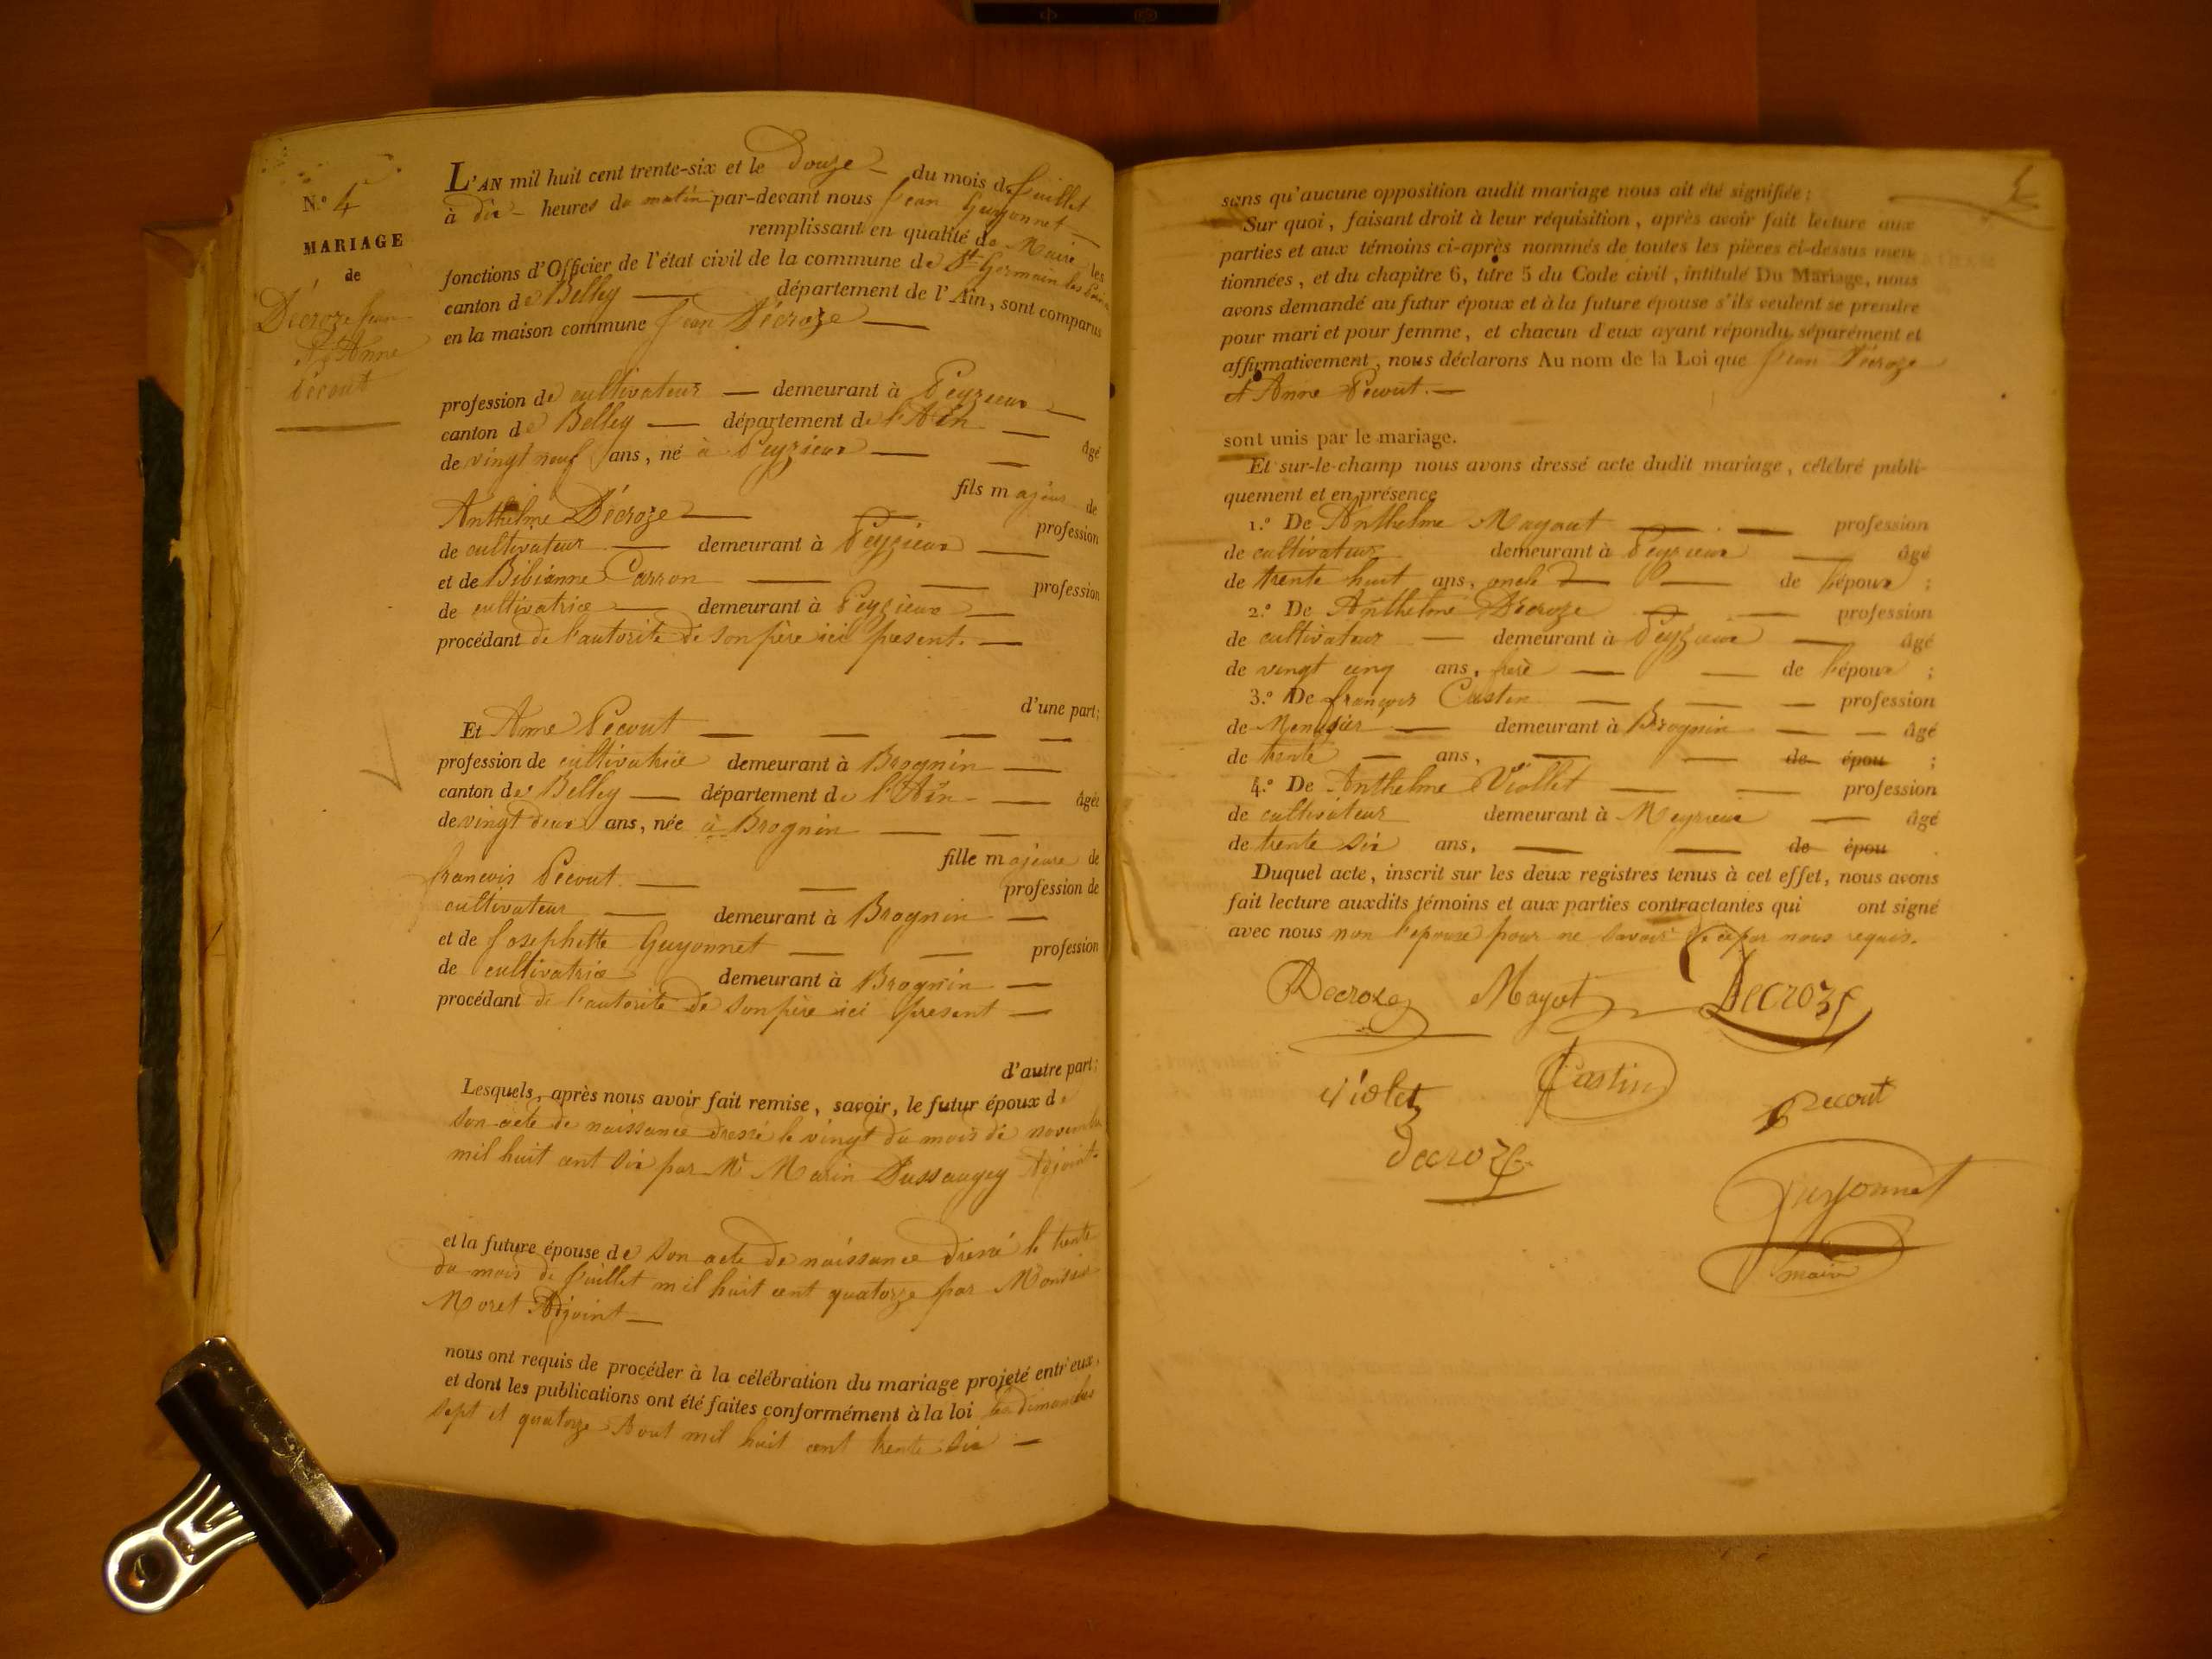 N.° 4
MARIAGE
de
Décroze Jean
et Anne
Pécout
L'AN mil huit cent trente-six et le Douze du mois de Juillet
à dix heures du matin par-devant nous Jean Guyonnet
remplissant en qualité de Maire les
fonctions d'Officier de l'état civil de la commune de St Germain les
canton de Belley département de l'Ain, sont comparus
en la maison commune Jean Décroze
profession de cultivateur demeurant à Peyzieux
canton de Belley département de l'Ain âgé
de vingt neuf ans, né à Peyzieux
fils majeur de
Anthelme Décroze profession
de cultivateur demeurant à Peyzieux
et de Bibianne Carron profession
de cultivatrice demeurant à Peyzieux
procédant de l'autorité de son père ici présent.
d'une part;
Et Anne Pécout
profession de cultivatrice demeurant à Brognin
canton de Belley département de l'Ain âgée
de vingt deux ans, née à Brognin
fille majeure de
francois Pécout profession de
cultivateur demeurant à Brognin
et de Josephette Guyonnet profession
de cultivatrice demeurant à Brognin
procédant de l'autorité de son père ici présent
d'autre part;
Lesquels, après nous avoir fait remise, savoir, le futur époux de
son acte de naissance dressé le vingt du mois de novembre
mil huit cent six par Mr Marin Dussaugey Adjoint
et la future épouse de son acte de naissance dressé le trente
du mois de Juillet mil huit cent quatorze par Monsieur
Moret Adjoint
nous ont requis de procéder à la célébration du mariage projeté entr'eux,
et dont les publications ont été faites conformément à la loi les dimanches
sept et quatorze Aout mil huit cent trente six
sans qu'aucune opposition audit mariage nous ait été signifiée;
Sur quoi, faisant droit à leur réquisition, après avoir fait lecture aux
parties et aux témoins ci-après nommés de toutes les pièces ci-dessus men
tionnées, et du chapitre 6, titre 5 du Code civil, intitulé Du Mariage, nous
avons demandé au futur époux et à la future épouse s'ils veulent se prendre
pour mari et pour femme, et chacun d'eux ayant répondu séparément et
affirmativement, nous déclarons Au nom de la Loi que Jean Décroze
et Anne Pécout.
sont unis par le mariage.
Et sur-le-champ nous avons dressé acte dudit mariage, célébré publi-
quement et en présence
1.° De Anthelme Mayout profession
de cultivateur demeurant à Peyzieux âgé
de trente huit ans, oncle de l'époux;
2.° De Anthelme Décroze profession
de cultivateur demeurant à Peyzieux âgé
de vingt cinq ans, frère de l'époux;
3.° De françois Castin profession
de Menusier demeurant à Brognin âgé
de trente ans, de épou;
4.° De Anthelme Viollet profession
de cultivateur demeurant à Meyrieux âgé
de trente six ans, de épou.
Duquel acte, inscrit sur les deux registres tenus à cet effet, nous avons
fait lecture auxdits témoins et aux parties contractantes qui ont signé
avec nous non l'epouse pour ne savoir de ce par nous requis.
Decroze Mayot Decroze
violet Castin Pecout
decroze
Guyonnet
maire